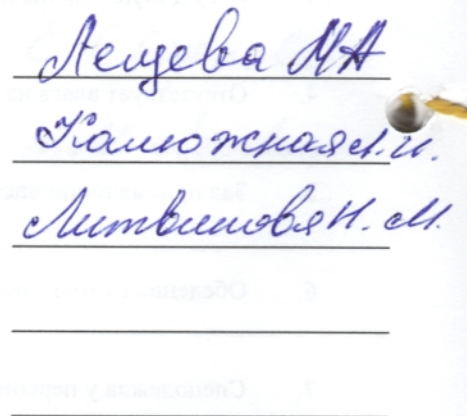 Лещева МА
Калюжная Л.И.
Литвинова Н. М.